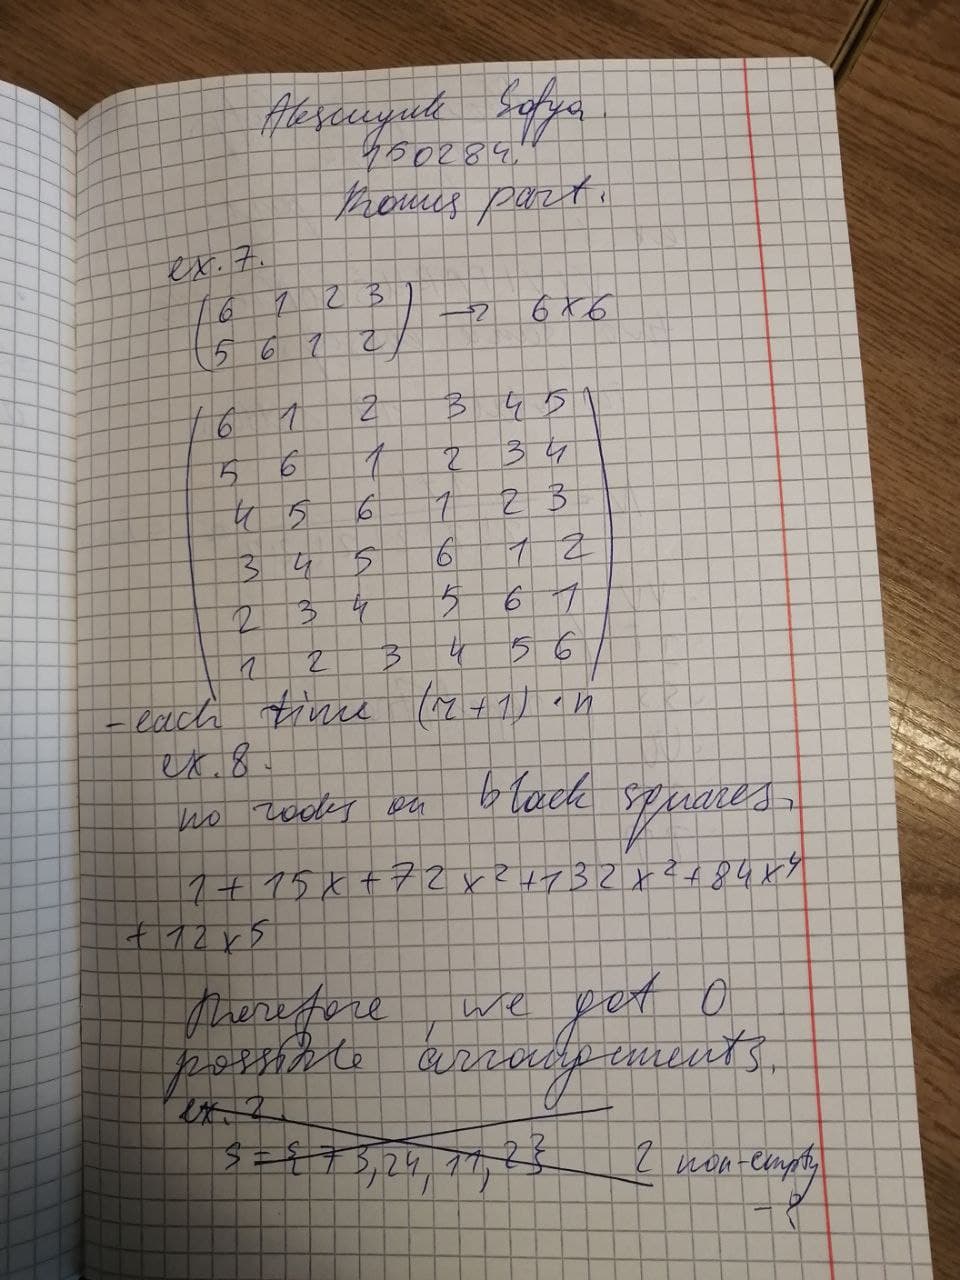 Sofya.
150284.
Bonus part.
ex. 7.
(6 1 2 3
5 6 1 2) → 6x6
(6 1 2 3 4 5
5 6 1 2 3 4
4 5 6 1 2 3
3 4 5 6 1 2
2 3 4 5 6 1
1 2 3 4 5 6)
- each time (r+1)·n
ex. 8.
no rooks on black squares.
1 + 15x + 72x² + 132x² + 84x⁴
+ 12x5
therefore, we got 0
possible arrangements.
ex. 2.
S = { 7 3, 24, 11, 2} 2 non-empty
- ?